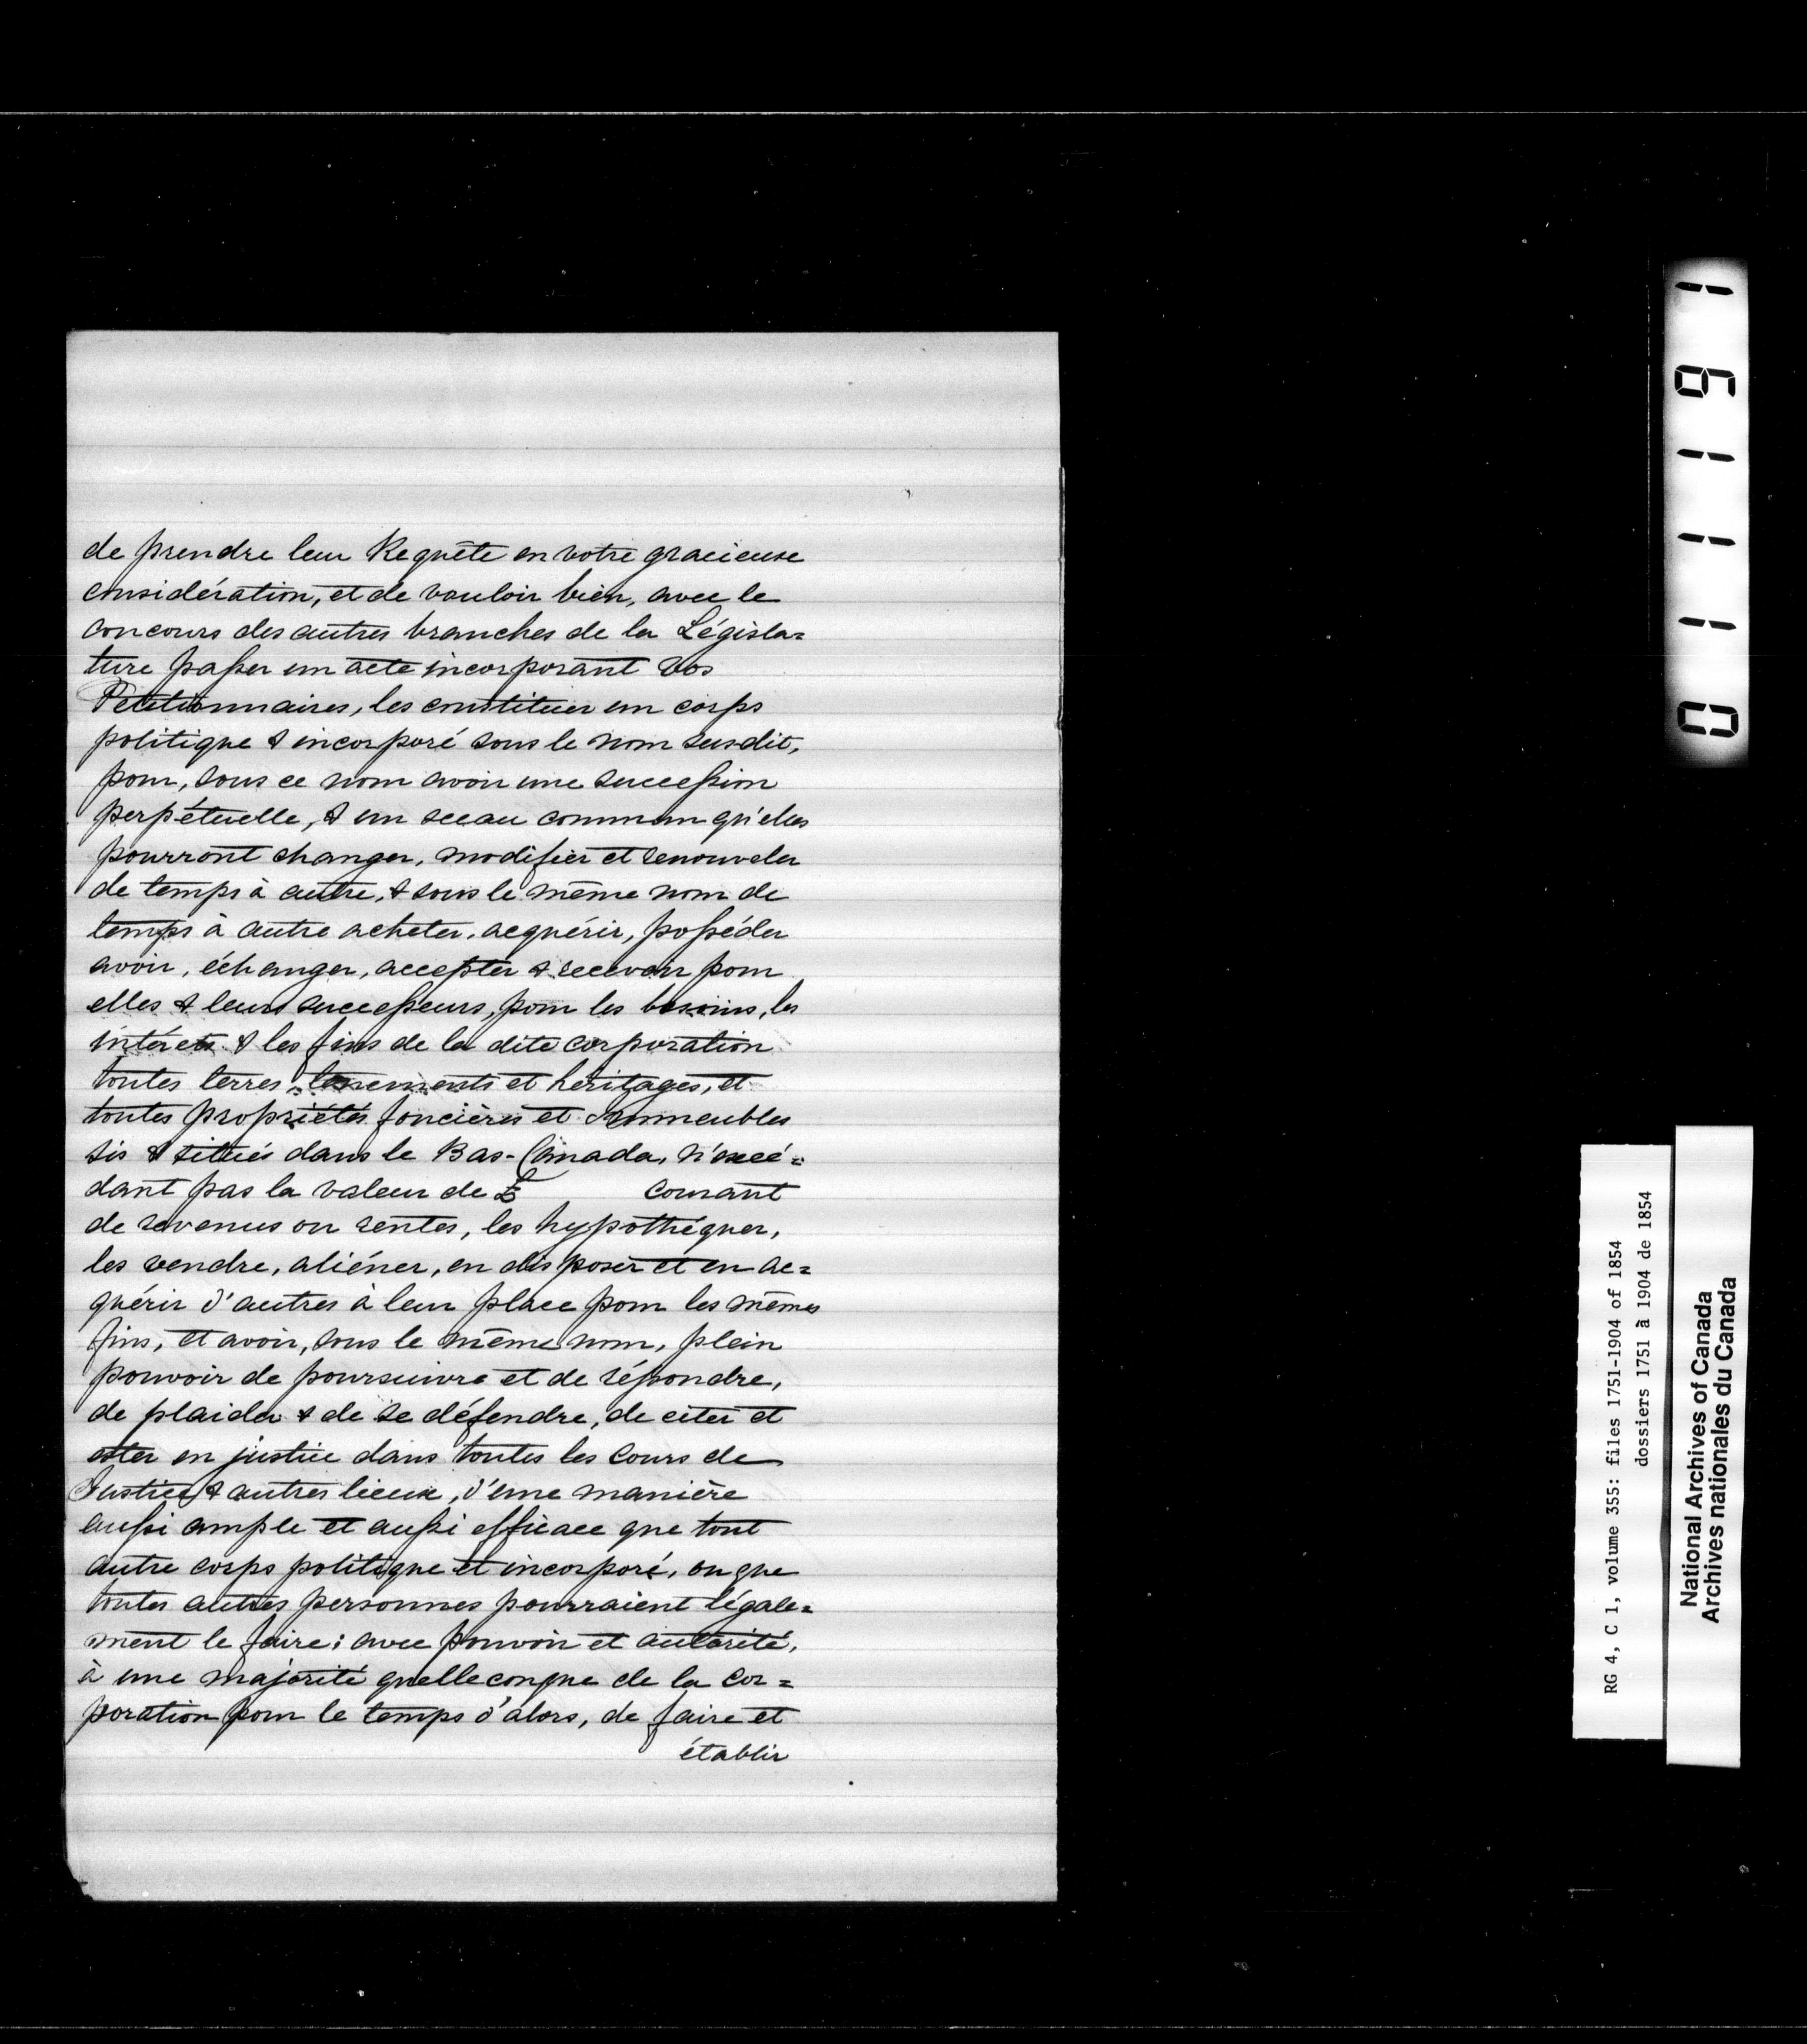 de prendre leur Requête en votre gracieuse
considération, et de vouloir bien, avec le
concours des autres branches de la Législa=
ture passer un acte incorporant vos
Petitionnaires, les constituer en corps
politique & incorporé sous le nom susdit,
pour, sous ce nom avoir une succession
perpétuelle, & un sceau commun qu'elles
pourront changer, modifier et renouveler
de temps à autre, & sous le même nom de
temps à autre acheter, acquérir, posséder
avoir, échanger, accepter & recevoir pour
elles & leurs successeurs, pour les besoins, les
intérets & les fins de la dite corporation
toutes terres, tenements et héritages, et
toutes propriétés foncières et Immeubles
sis & situés dans le Bas-Canada, n'excé=
dant pas la valeur de £ courant
de revenus ou rentes, les hypothéquer,
les vendre, aliéner, en disposer et en ac=
quérir d'autres à leur place pour les mêmes
fins, et avoir, sous le même nom, plein
pouvoir de poursuivre et de répondre,
de plaider & de se défendre, de citer et
ester en justice dans toutes les Cours de
Justice & autres lieux, d'une manière
aussi ample et aussi efficace que tout
autre corps politique et incorporé, ou que
toutes autres personnes pourraient légale=
ment le faire; avec pouvoir et autorité,
à une majorité quelleconque de la Cor=
poration pour le temps d'alors, de faire et
établir
0 1 1 1 6 1
RG 4, C 1, volume 355: files 1751-1904 of 1854
dossiers 1751 à 1904 de 1854
National Archives of Canada
Archives nationales du Canada